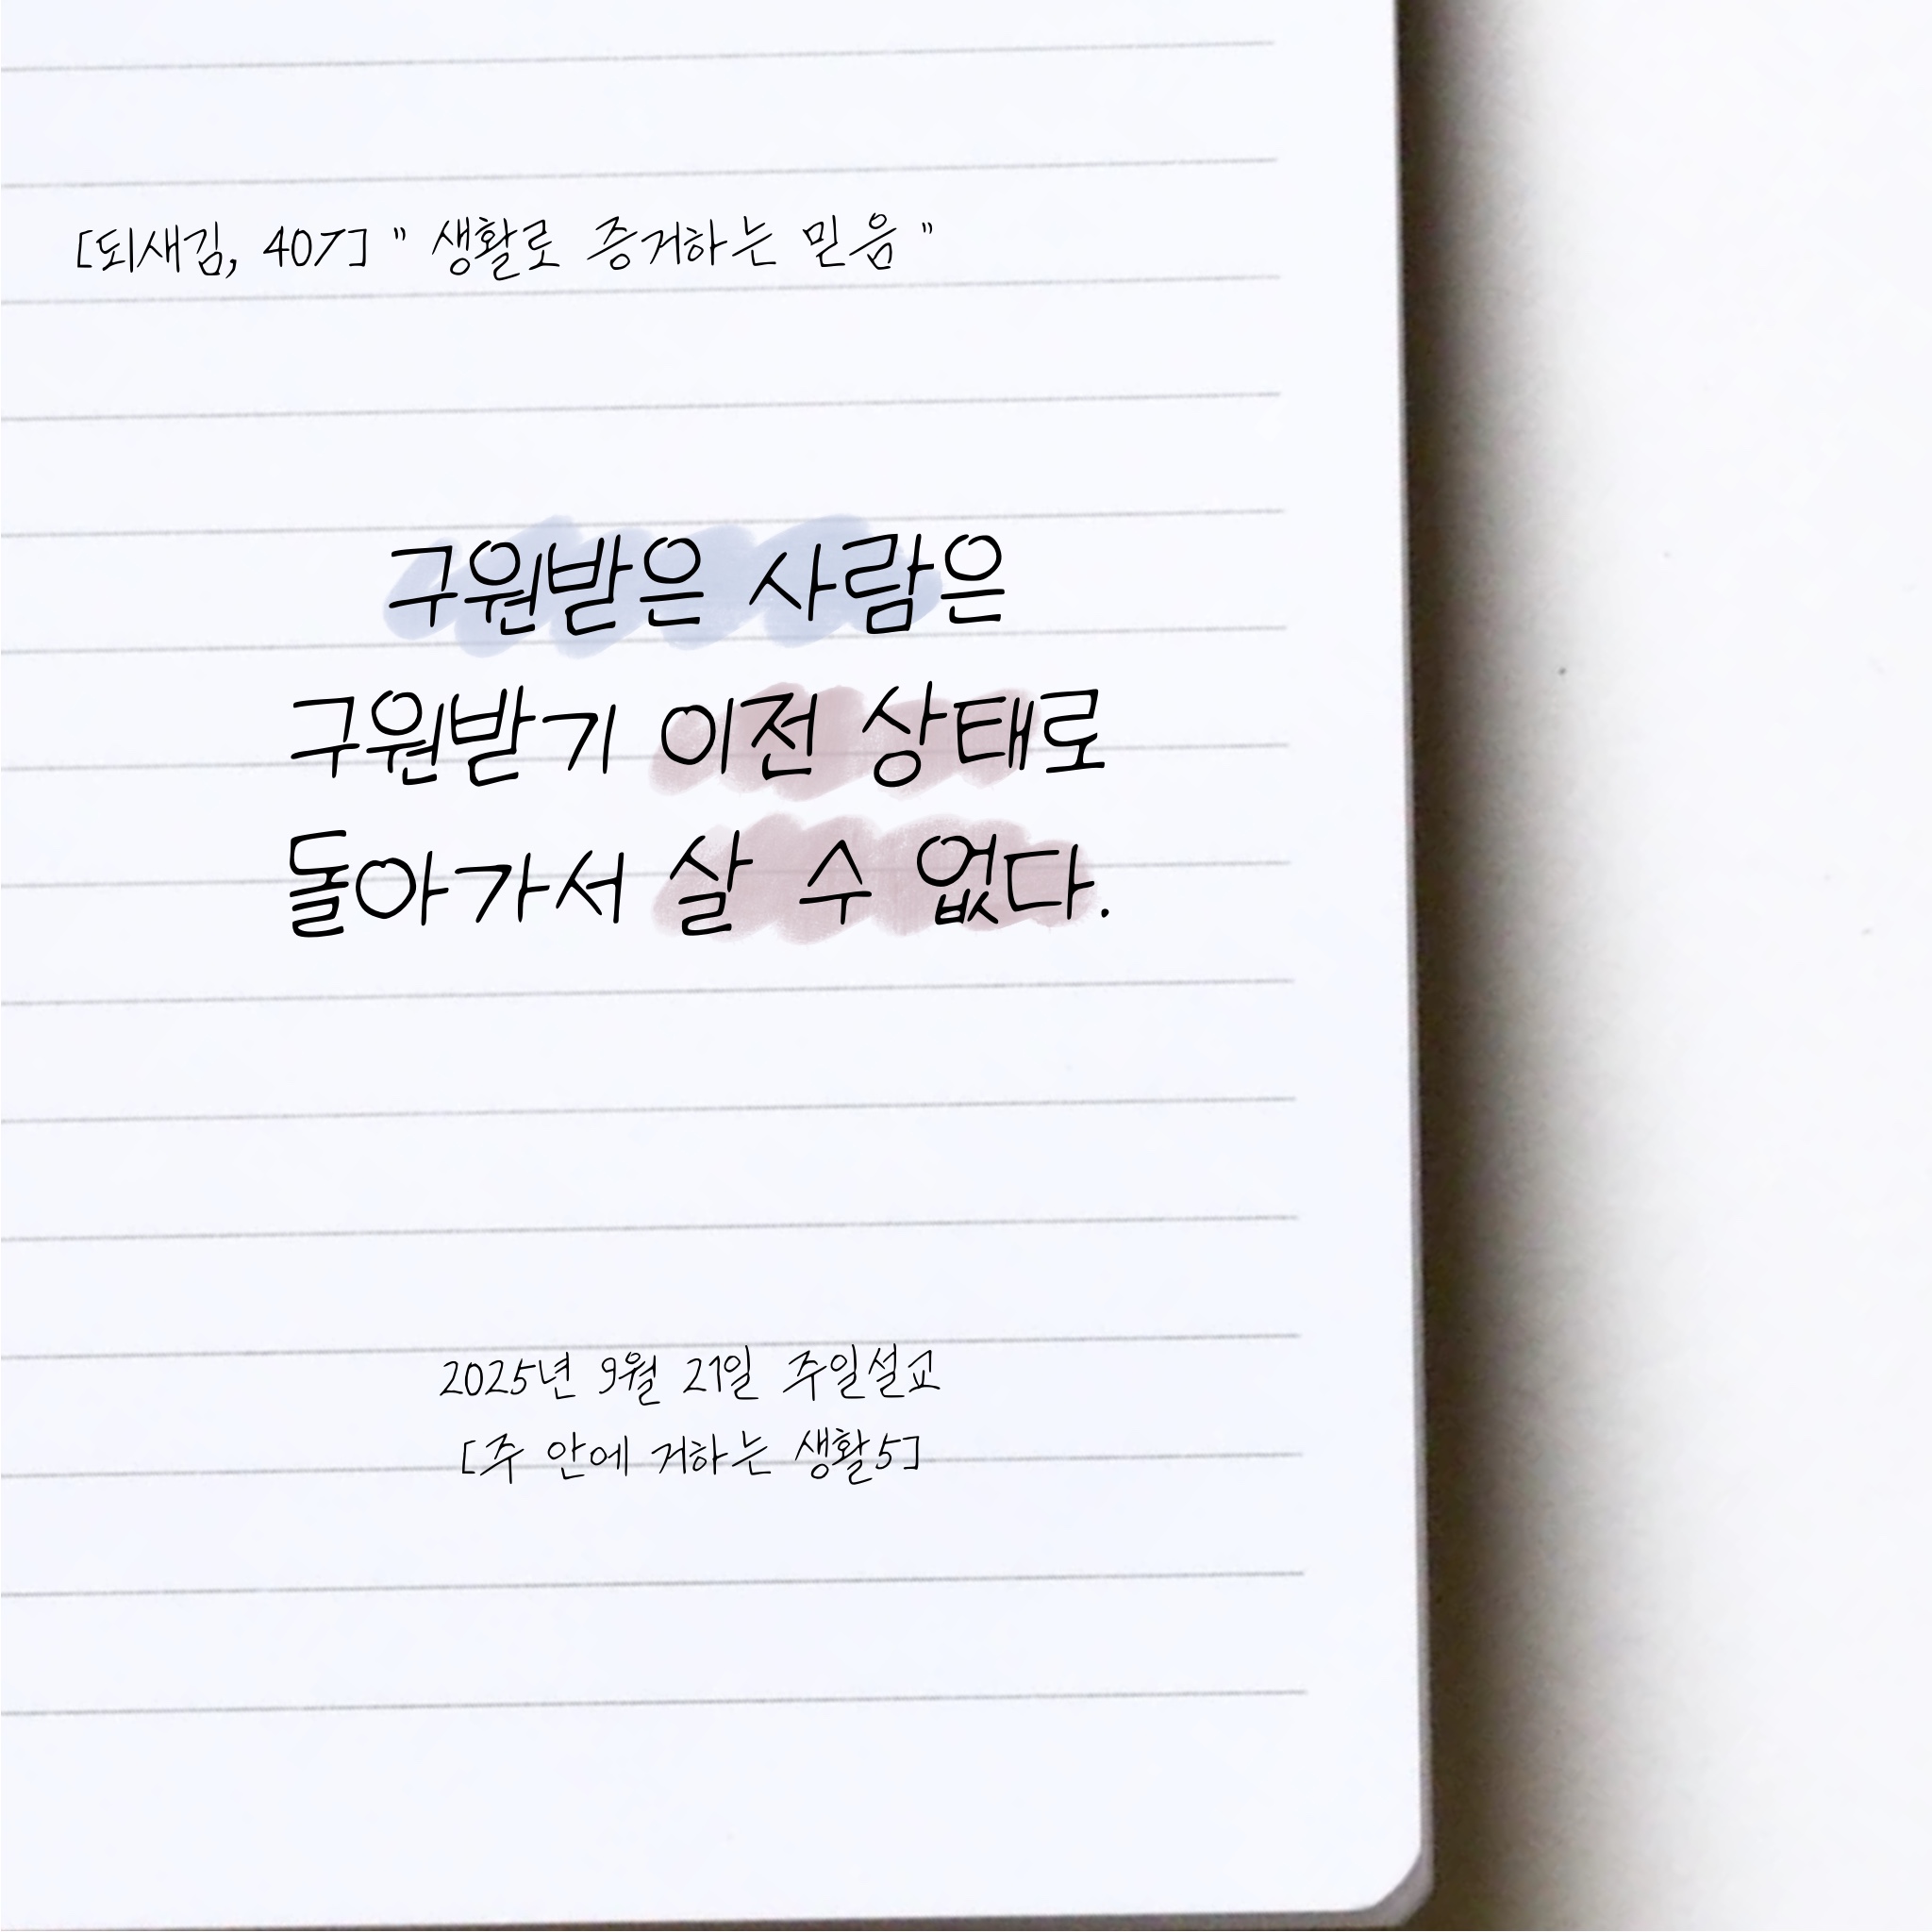 [되새김, 407] " 생활로 증거하는 믿음 "
구원받은 사람은
구원받기 이전 상태로
돌아가서 살 수 없다.
2025년 9월 21일 주일설교
[주 안에 거하는 생활5]